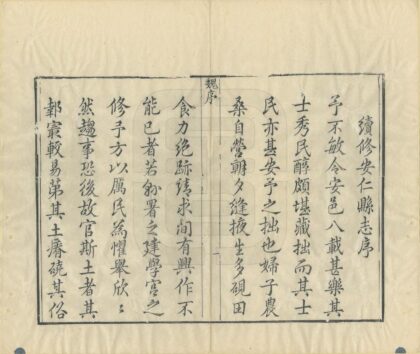 續修安仁縣志序
予不敏令安邑八載甚樂其
士秀民醇頗堪藏拙而其士
民亦甚安予之拙也婦子農
桑自營朝夕縫掖生多硯田
魏序
食力絶跡請求間有興作不
能已者若衙署之建學宮之
修予方以厲民為懼舉欣〻
然趨事恐後故官斯土者其
郼最較易第其土瘠硗其俗